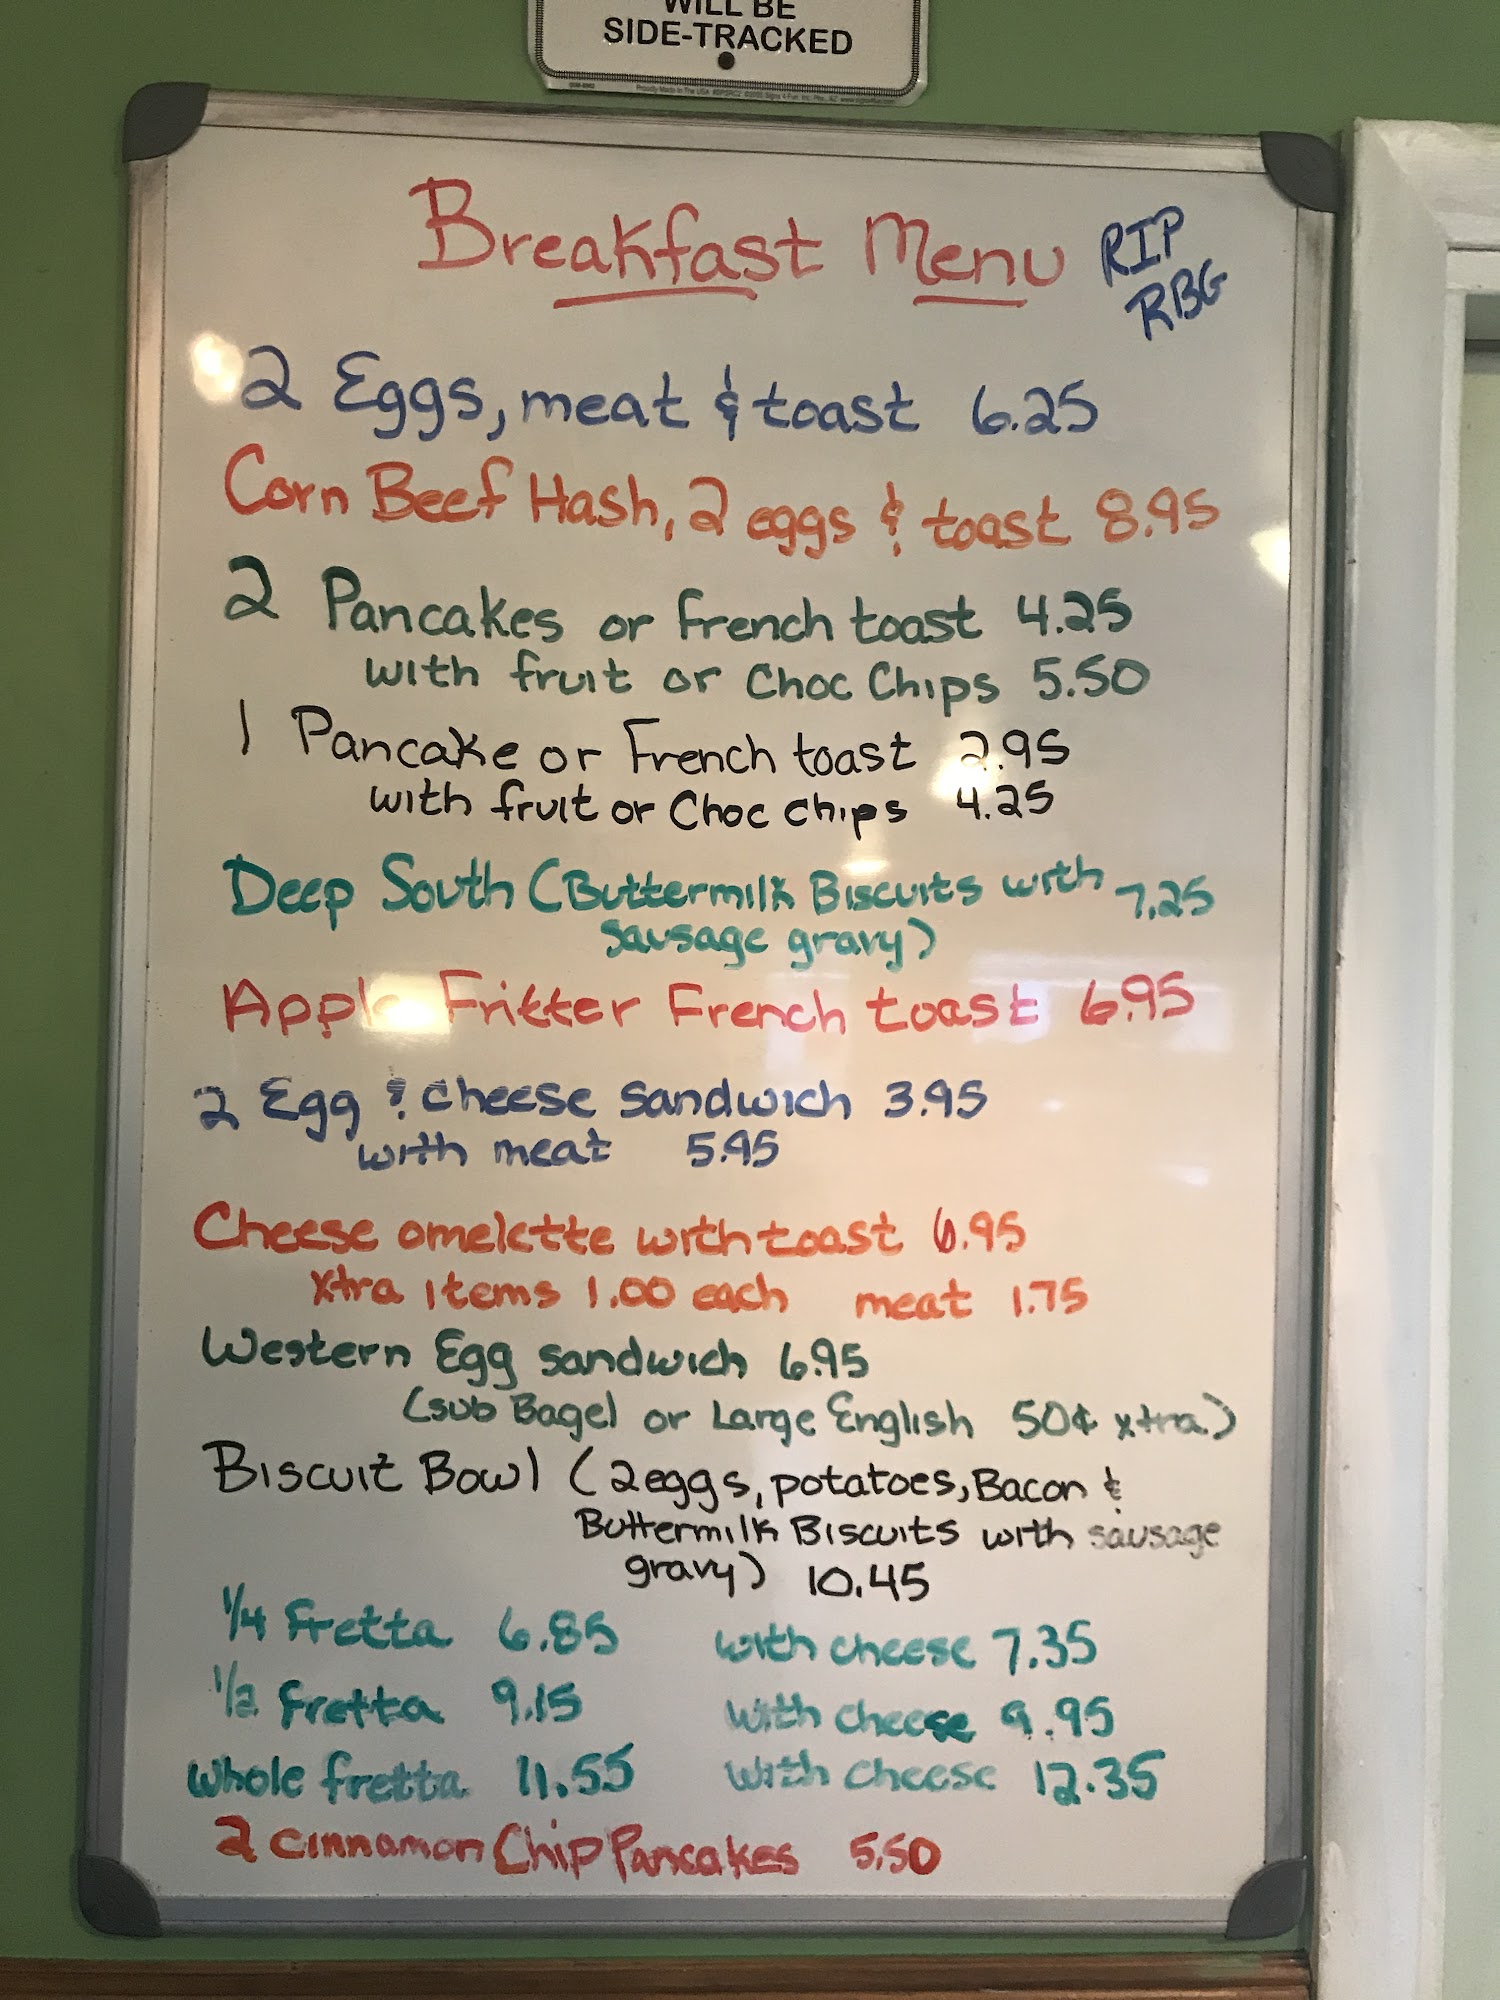 WILL BE
SIDE-TRACKED
Breakfast Menu
RIP
RBG
2 Eggs, meat & toast 6.25
Corn Beef Hash, 2 eggs & toast 8.95
2 Pancakes or French toast 4.25
with fruit or Choc Chips 5.50
1 Pancake or French toast 2.95
with fruit or Choc chips 4.25
Deep South (Buttermilk Biscuits with 7.25
sausage gravy)
Apple Fritter French toast 6.95
2 Egg & cheese sandwich 3.95
with meat 5.95
Cheese omelette with toast 6.95
xtra items 1.00 each meat 1.75
Western Egg sandwich 6.95
(sub Bagel or Large English 50¢ xtra.)
Biscuit Bowl (2 eggs, potatoes, Bacon &
Buttermilk Biscuits with sausage
gravy) 10.45
1/4 fretta 6.85 with cheese 7.35
1/2 fretta 9.15 with cheese 9.95
whole fretta 11.55 with cheese 12.35
2 cinnamon Chip Pancakes 5.50